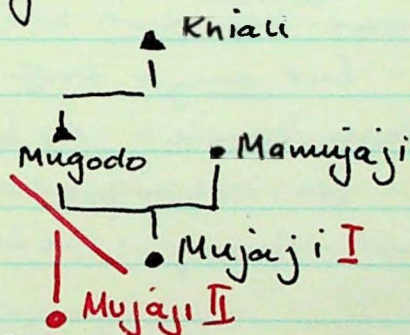 Khiali
Mugodo
Mamujaji
Mujaji I
Mujaji II